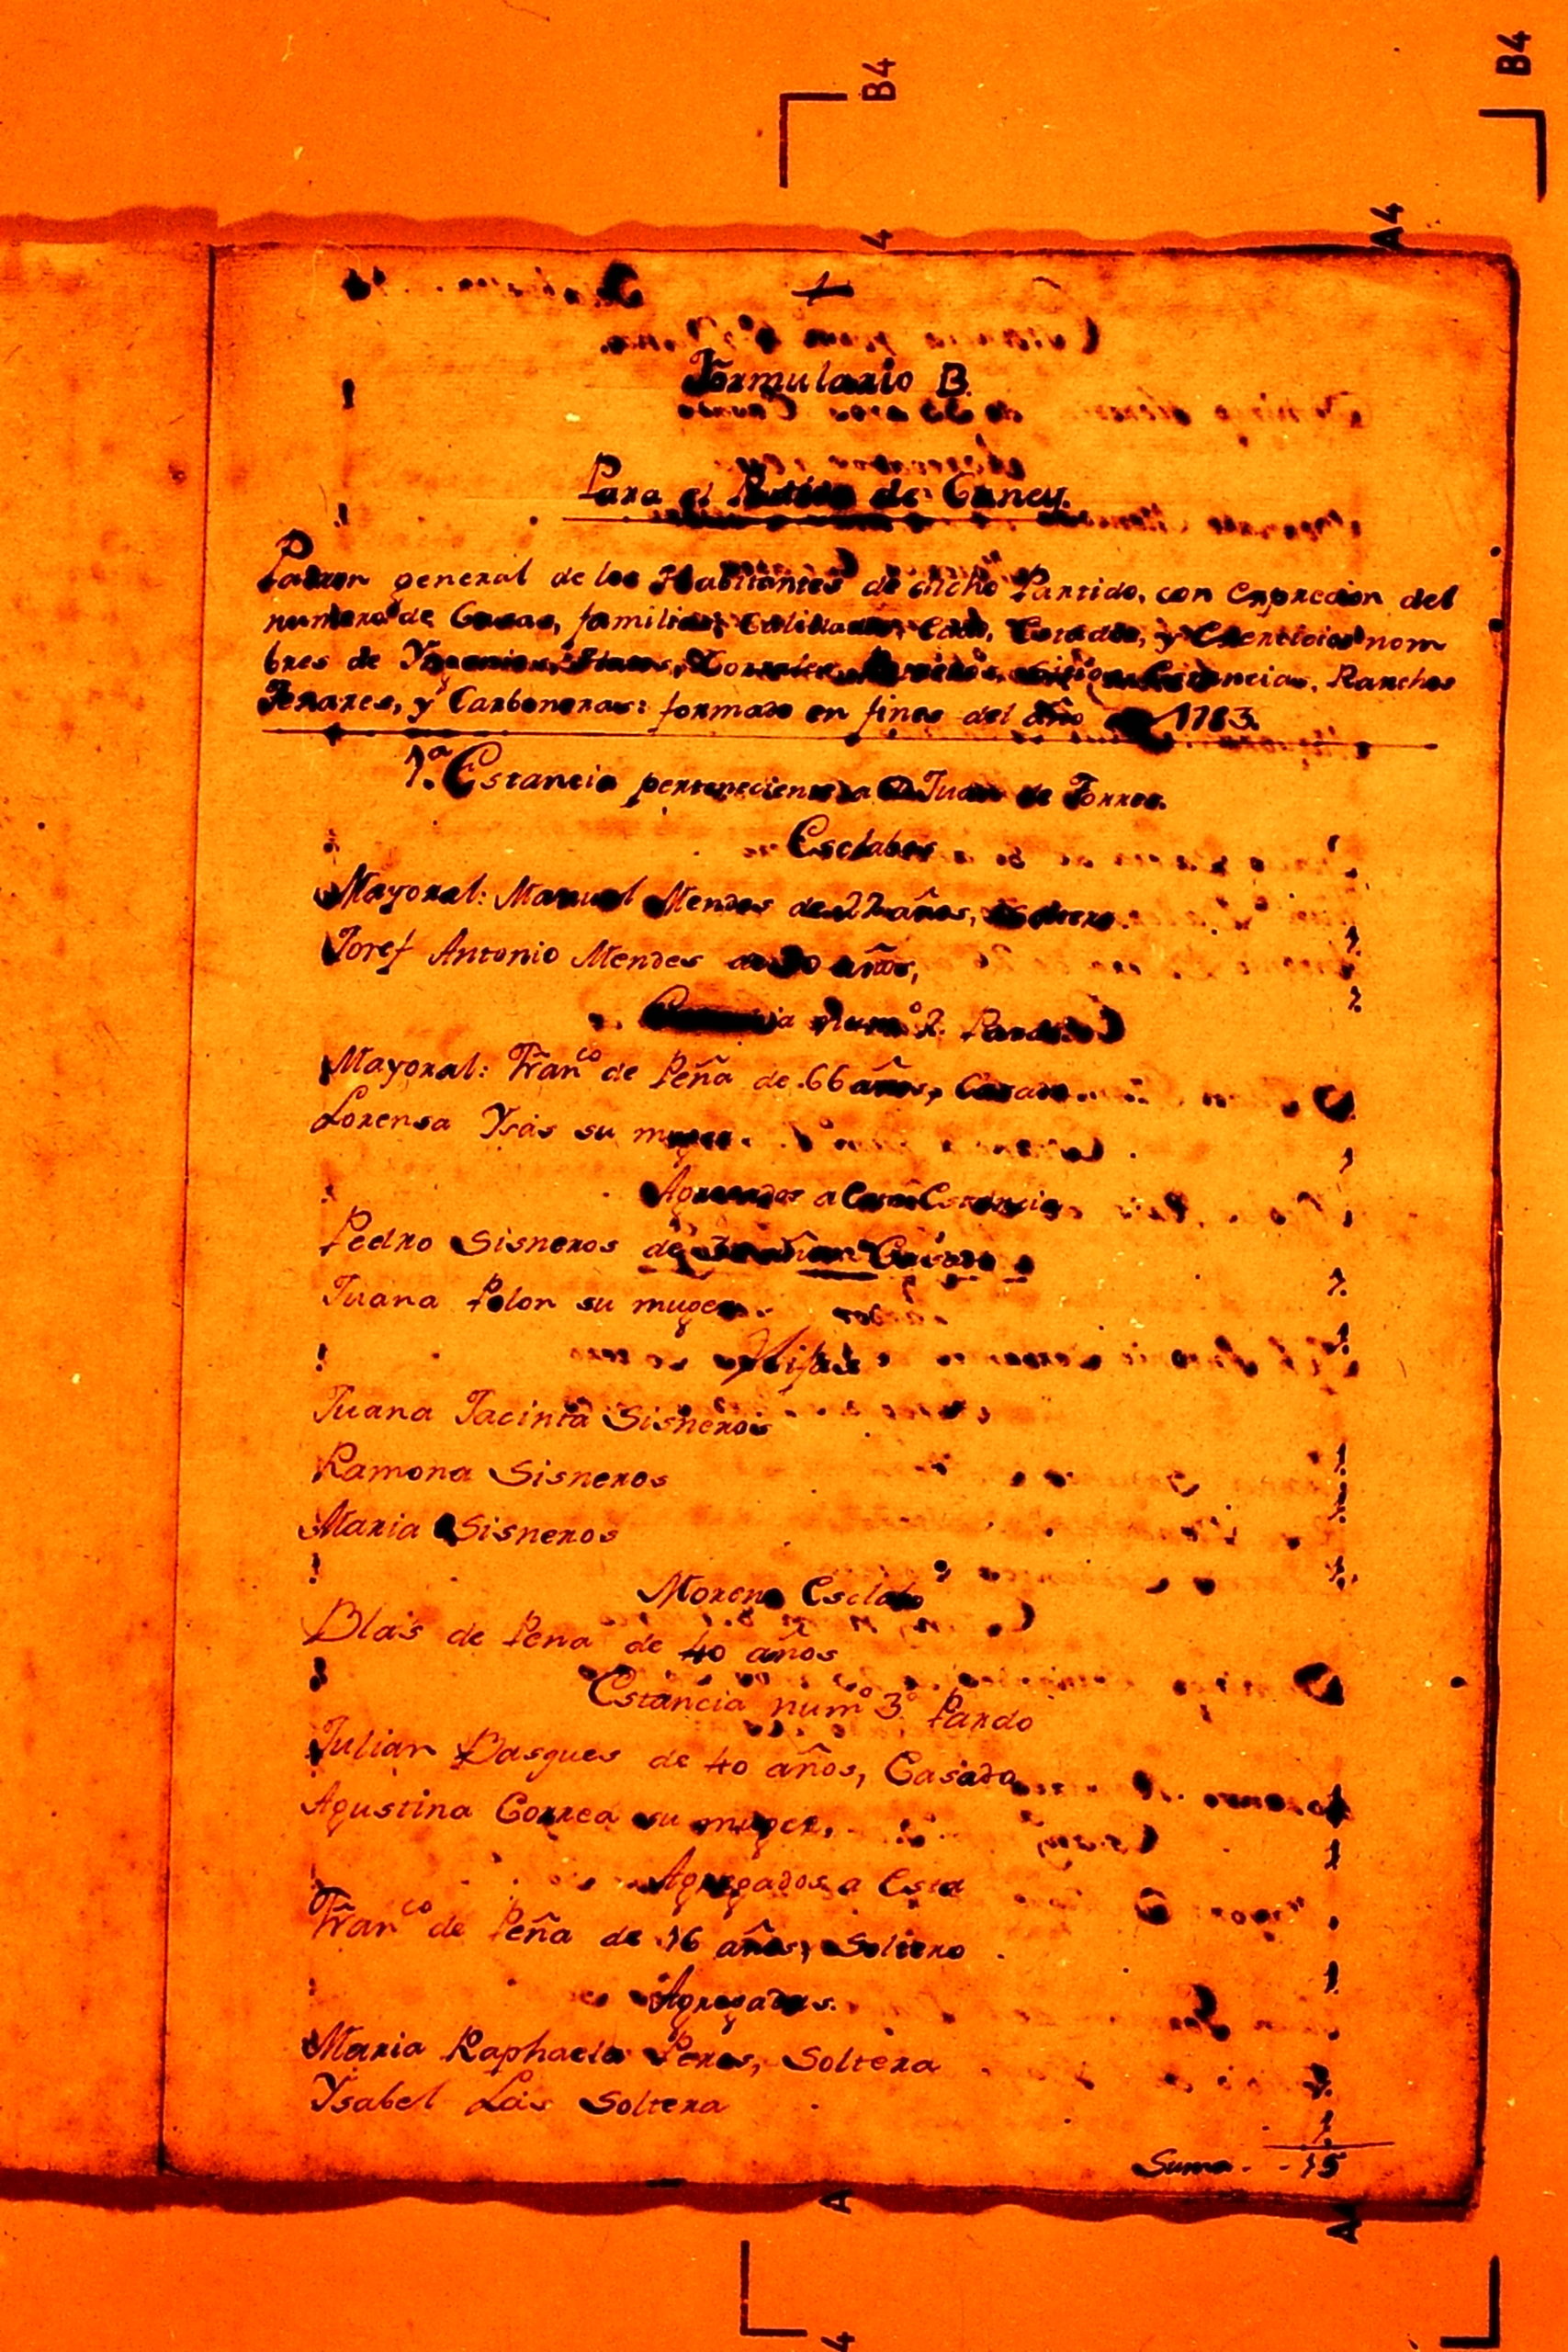 B4
B4
A4
4
Formulario B.
Para el Partido de Caney.
Padron general de los Habitantes de dicho Partido, con Exprecion del
numero de Casas, familias, Calidades, Edad, Estados, y Exercicios nom
bres de Yngenios, Corrales, Estancias, Ranchos
Texares, y Carboneras: formado en fines del año de 1783.
1.ª Estancia perteneciente a D Juan de Torres.
Esclabos
Mayoral: Manuel Mendes de 27 años, Soltero
Josef Antonio Mendes de 30 años,
Estancia num.º 2. Pardos
Mayoral: Fran.co de Peña de 66 años, Casado
Lorensa Ysás su muger
Agregados a Esta Estancia
Pedro Sisneros de Casado
Juana Polon su muger
Hijas
Juana Jacinta Sisneros
Ramona Sisneros
Maria Sisneros
Moreno Esclabo
Blas de Pena de 40 años
Estancia num.º 3.º Pardo
Julian Basques de 40 años, Casado
Agustina Correa su muger,
Agregados a Esta
Fran.co de Peña de 16 años, Soltero
Agregadas.
Maria Raphaela Peres, Soltera
Ysabel Lás Soltera
1.
Suma - - 15
A
4